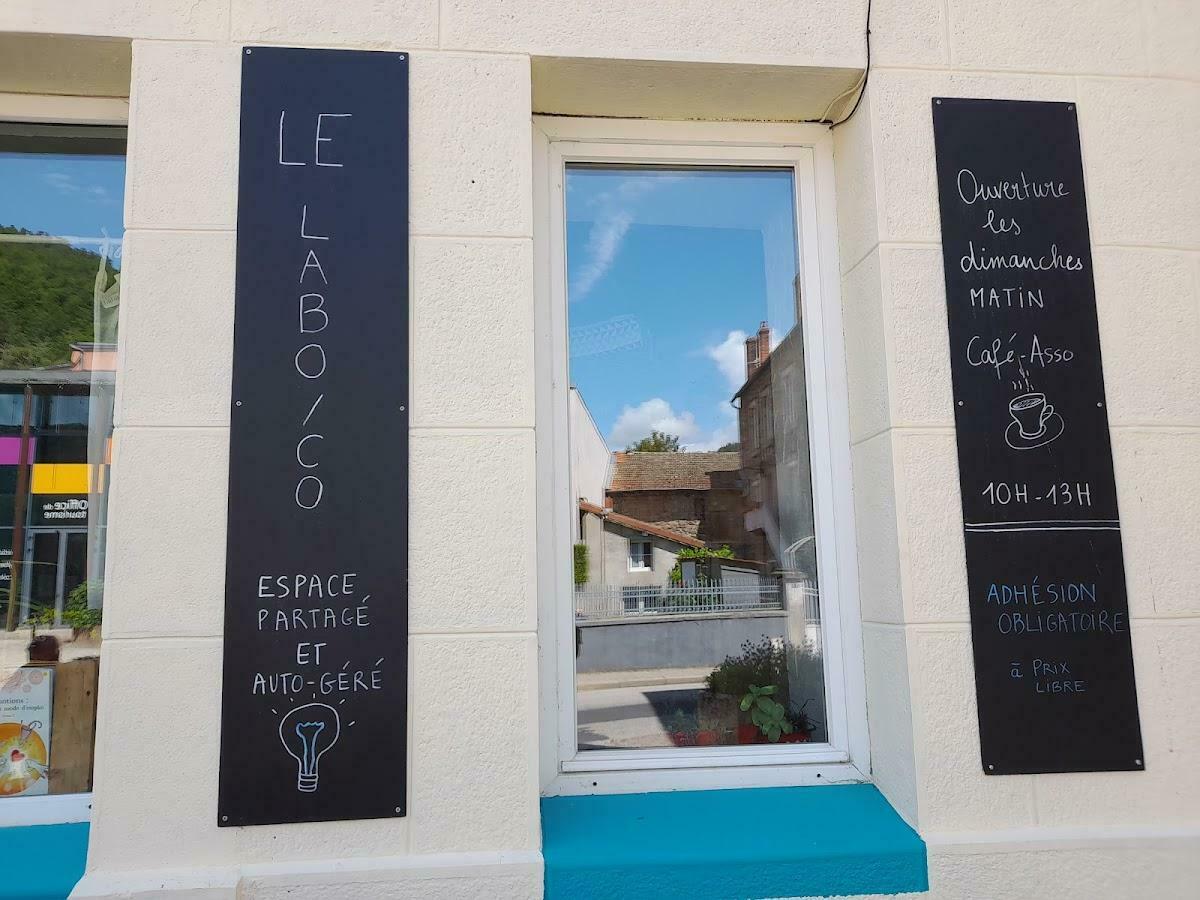 LE
LABO/CO
ESPACE
PARTAGÉ
ET
AUTO-GÉRÉ
Ouverture
les
dimanches
MATIN
Café-Asso
10H-13H
ADHÉSION
OBLIGATOIRE
à PRIX
LIBRE
Office de
tourisme